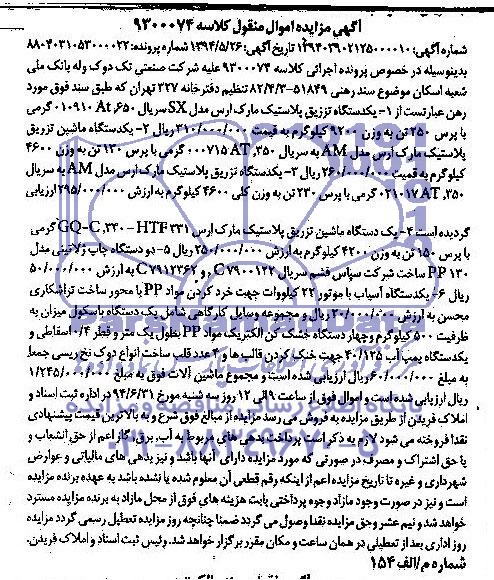 آگهی مزایده اموال منقول کلاسه ۹۳۰۰۰۷۴
شماره آگهی: ۱۳۹۴۰۳۹۰۲۱۲۵۰۰۰۰۱۰ تاریخ آگهی: ۱۳۹۴/۵/۲۶ شماره پرونده: ۸۸۰۴۰۳۱۰۵۳۰۰۰۰۲۲
بدینوسیله در خصوص پرونده اجرائی کلاسه ۹۳۰۰۰۷۴ علیه شرکت صنعتی تک دوک وله بانک ملی
شعبه اسکان موضوع سند رهنی ۵۱۸۴۹-۸۲/۴/۳ تنظیم دفترخانه ۲۲۷ تهران که طبق سند فوق مورد
رهن عبارتست از ۱- یکدستگاه تزریق پلاستیک مارک ارس مدل SX سریال At,۶۵۰ ۰۱۰۹۱۰ گرمی
با پرس ۲۵۰ تن به وزن ۹۲۰۰ کیلوگرم به قیمت ۳۱۰/۰۰۰/۰۰۰ ریال ۲- یکدستگاه ماشین تزریق
پلاستیک مارک ارس مدل AM به سریال AT ,۳۵۰ ۰۰۰۷۱۵ گرمی با پرس ۱۳۰ تن به وزن ۴۶۰۰
کیلوگرم به قیمت ۲۶۰/۰۰۰/۰۰۰ ریال ۳- یکدستگاه تزریق پلاستیک مارک ارس مدل AM به سریال
AT ,۳۵۰ ۰۲۱۰۱۷ گرمی با پرس ۲۳۰ تن به وزن کلی ۴۶۰۰ کیلوگرم به ارزش ۲۹۵/۰۰۰/۰۰۰ ارزیابی
گردیده است ۴- یک دستگاه ماشین تزریق پلاستیک مارک ارس GQ-C ,۳۴۰ - HTF۳۳۱ گرمی
با پرس ۱۵۰ تن به وزن ۴۲۰۰ کیلوگرم به ارزش ۲۵۰/۰۰۰/۰۰۰ ریال ۵- دو دستگاه چاپ ژلاتینی مدل
PP ۱۳۰ ساخت شرکت سپاس قشم سریال C۷۹۰۰۱۲۲ و C۷۹۱۲۳۶۲ به ارزش ۵۰/۰۰۰/۰۰۰
ریال ۶- یکدستگاه آسیاب با موتور ۲۲ کیلووات جهت خرد کردن مواد PP با محور ساخت تراشکاری
محسن به ارزش ۲۰/۰۰۰/۰۰۰ ریال و مجموعه وسایل کارگاهی شامل یک دستگاه باسکول میزان به
ظرفیت ۵۰۰ کیلوگرم و چهار دستگاه خشک کن الکتریک مواد PP بطول یک متر و قطر ۰/۴ اسقاطی و
یکدستگاه پمپ آب ۴۰/۱۲۵ جهت خنک کردن قالب ها و ۳ عدد قالب ساخت انواع دوک نخ ریسی جمعا
به مبلغ ۶۰/۰۰۰/۰۰۰ ریال ارزیابی شده است و مجموع ماشین آلات فوق به مبلغ ۱/۲۴۵/۰۰۰/۰۰۰
ریال ارزیابی شده و اموال فوق از ساعت ۹ الی ۱۲ روز سه شنبه مورخ ۹۴/۶/۳۱ در اداره ثبت اسناد و
املاک فریدن از طریق مزایده به فروش می رسد مزایده از مبالغ فوق شروع و به بالاترین قیمت پیشنهادی
نقدا فروخته می شود لازم به ذکر است پرداخت بدهی های مربوط به آب، برق، گاز اعم از حق انشعاب و
یا حق اشتراک و مصرف در صورتی که مورد مزایده دارای آنها باشد و نیز بدهی های مالیاتی و عوارض
شهرداری و غیره تا تاریخ مزایده اعم از اینکه رقم قطعی آن معلوم شده یا نشده باشد به عهده برنده مزایده
است و نیز در صورت وجود مازاد وجوه پرداختی بابت هزینه های فوق از محل مازاد به برنده مزایده مسترد
خواهد شد و نیم عشر و حق مزایده نقدا وصول می گردد ضمنا چنانچه روز مزایده تعطیل رسمی گردد مزایده
روز اداری بعد از تعطیلی در همان ساعت و مکان مقرر برگزار خواهد شد. رئیس ثبت اسناد و املاک فریدن.
شماره م/الف ۱۵۴